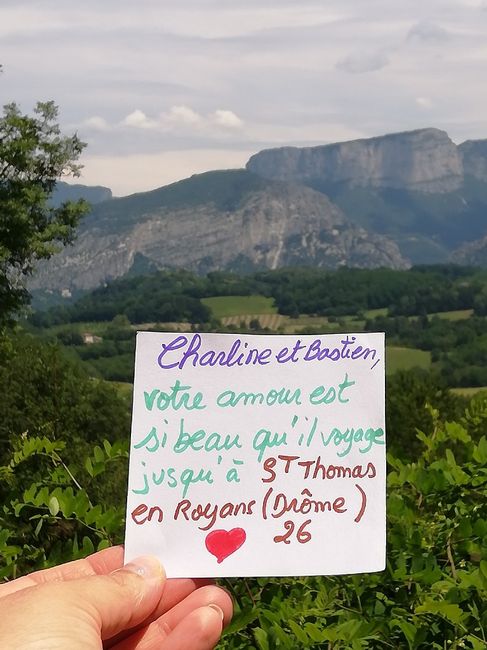 Charline et Bastien,
votre amour est
si beau qu'il voyage
jusqu'à ST Thomas
en Royans (Drôme)
26